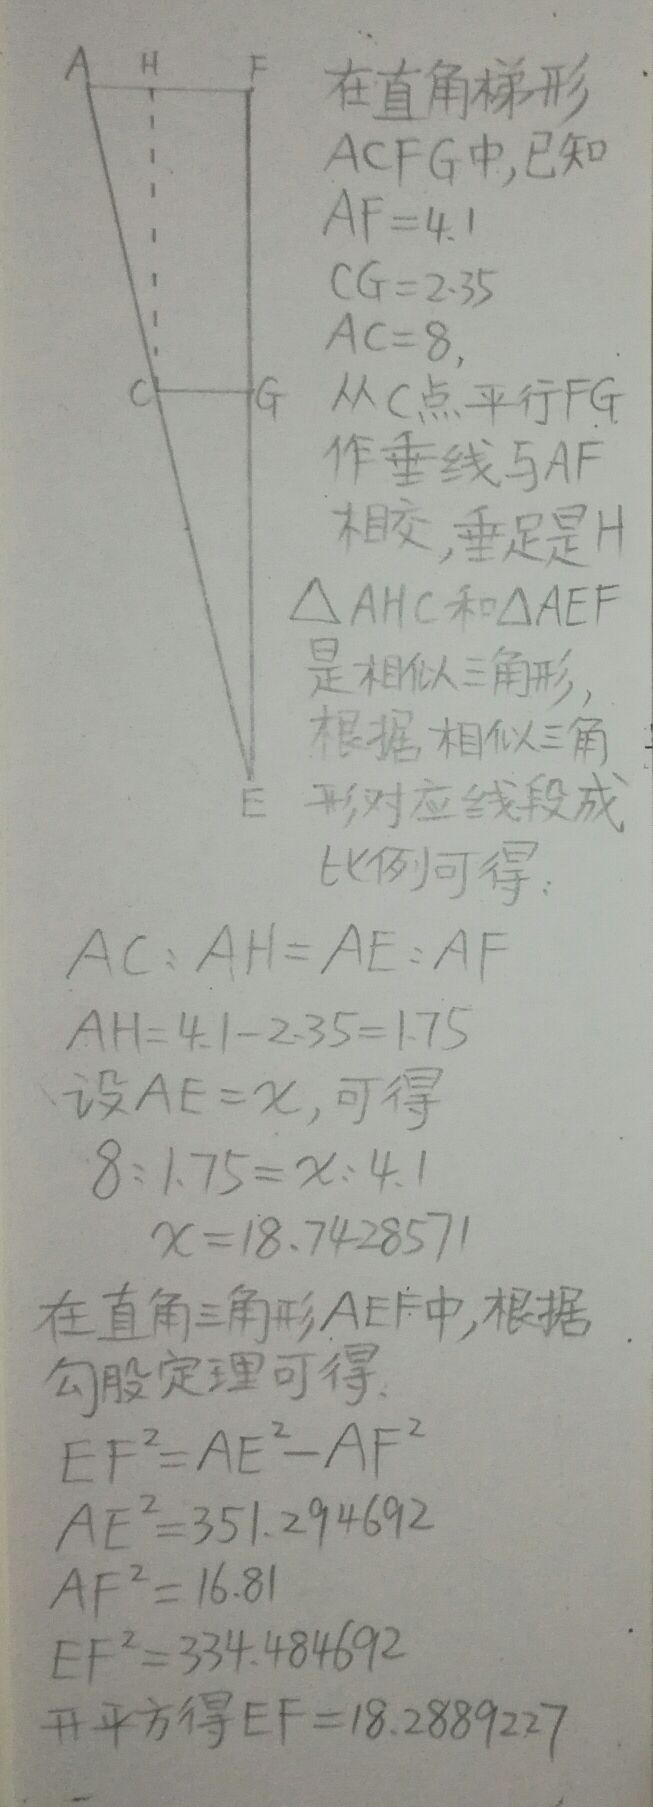 A H F
C G
E
在直角梯形
ACFG中,已知
AF=4.1
CG=2.35
AC=8,
从C点平行FG
作垂线与AF
相交,垂足是H
△AHC和△AEF
是相似三角形,
根据相似三角
形对应线段成
比例可得:
AC:AH=AE:AF
AH=4.1-2.35=1.75
设AE=x,可得
8:1.75=x:4.1
x=18.7428571
在直角三角形AEF中,根据
勾股定理可得:
EF²=AE²-AF²
AE²=351.294692
AF²=16.81
EF²=334.484692
开平方得EF=18.2889227